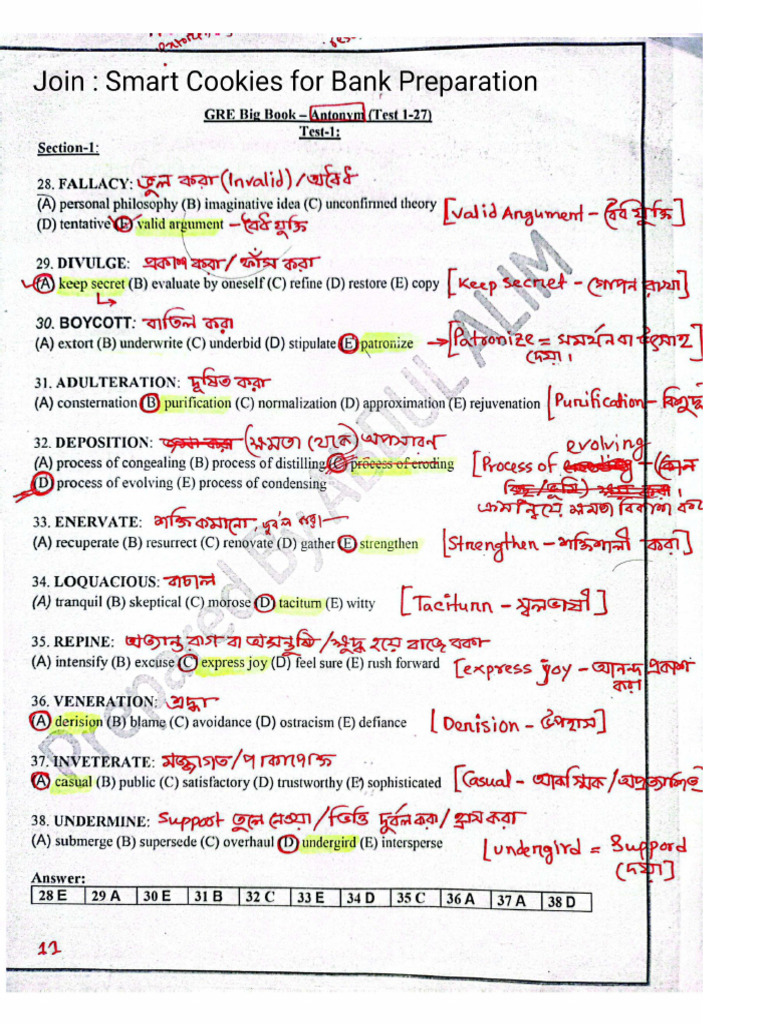 Join : Smart Cookies for Bank Preparation
GRE Big Book – Antonym (Test 1-27)
Test-1:
Section-1:
28. FALLACY: ভুল করা (Invalid) / অবৈধ
(A) personal philosophy (B) imaginative idea (C) unconfirmed theory [Valid Angument - বৈধ যুক্তি]
(D) tentative (E) valid argument – বৈধ যুক্তি
29. DIVULGE: প্রকাশ করা / ফাঁস করা
(A) keep secret (B) evaluate by oneself (C) refine (D) restore (E) copy [Keep secret - গোপন রাখা]
30. BOYCOTT: বাতিল করা
(A) extort (B) underwrite (C) underbid (D) stipulate (E) patronize → [Patronize = সমর্থন বা উৎসাহ
দেয়া।
31. ADULTERATION: দূষিত করা
(A) consternation (B) purification (C) normalization (D) approximation (E) rejuvenation [Purification - বিশুদ্ধ
32. DEPOSITION: (ক্ষমতা থেকে) অপসারণ
(A) process of congealing (B) process of distilling (C) process of eroding [Process of evolving - (কোন
(D) process of evolving (E) process of condensing
ক্রমান্বয়ে ক্ষমতা বিকাশ
33. ENERVATE: শক্তি কমানো, দুর্বল করা
(A) recuperate (B) resurrect (C) renovate (D) gather (E) strengthen [Strengthen - শক্তিশালী করা]
34. LOQUACIOUS: বাচাল
(A) tranquil (B) skeptical (C) morose (D) taciturn (E) witty [Taciturn - স্বল্পভাষী]
35. REPINE: অত্যান্ত রাগ বা অসন্তুষ্টি / ক্ষুদ্ধ হয়ে বাজে বকা
(A) intensify (B) excuse (C) express joy (D) feel sure (E) rush forward [express joy - আনন্দ প্রকাশ
করা]
36. VENERATION: শ্রদ্ধা
(A) derision (B) blame (C) avoidance (D) ostracism (E) defiance [Derision - উপহাস]
37. INVETERATE: মজ্জাগত /
(A) casual (B) public (C) satisfactory (D) trustworthy (E) sophisticated [Casual - আকস্মিক / অপ্রত্যাশিত
38. UNDERMINE: Support তুলে নেওয়া / ভিত্তি দুর্বল করা / হ্রাস করা
(A) submerge (B) supersede (C) overhaul (D) undergird (E) intersperse [undengird = Suppord
(দেয়া)]
Answer:
28 E 29 A 30 E 31 B 32 C 33 E 34 D 35 C 36 A 37 A 38 D
11
Prepared By ABDUL ALIM